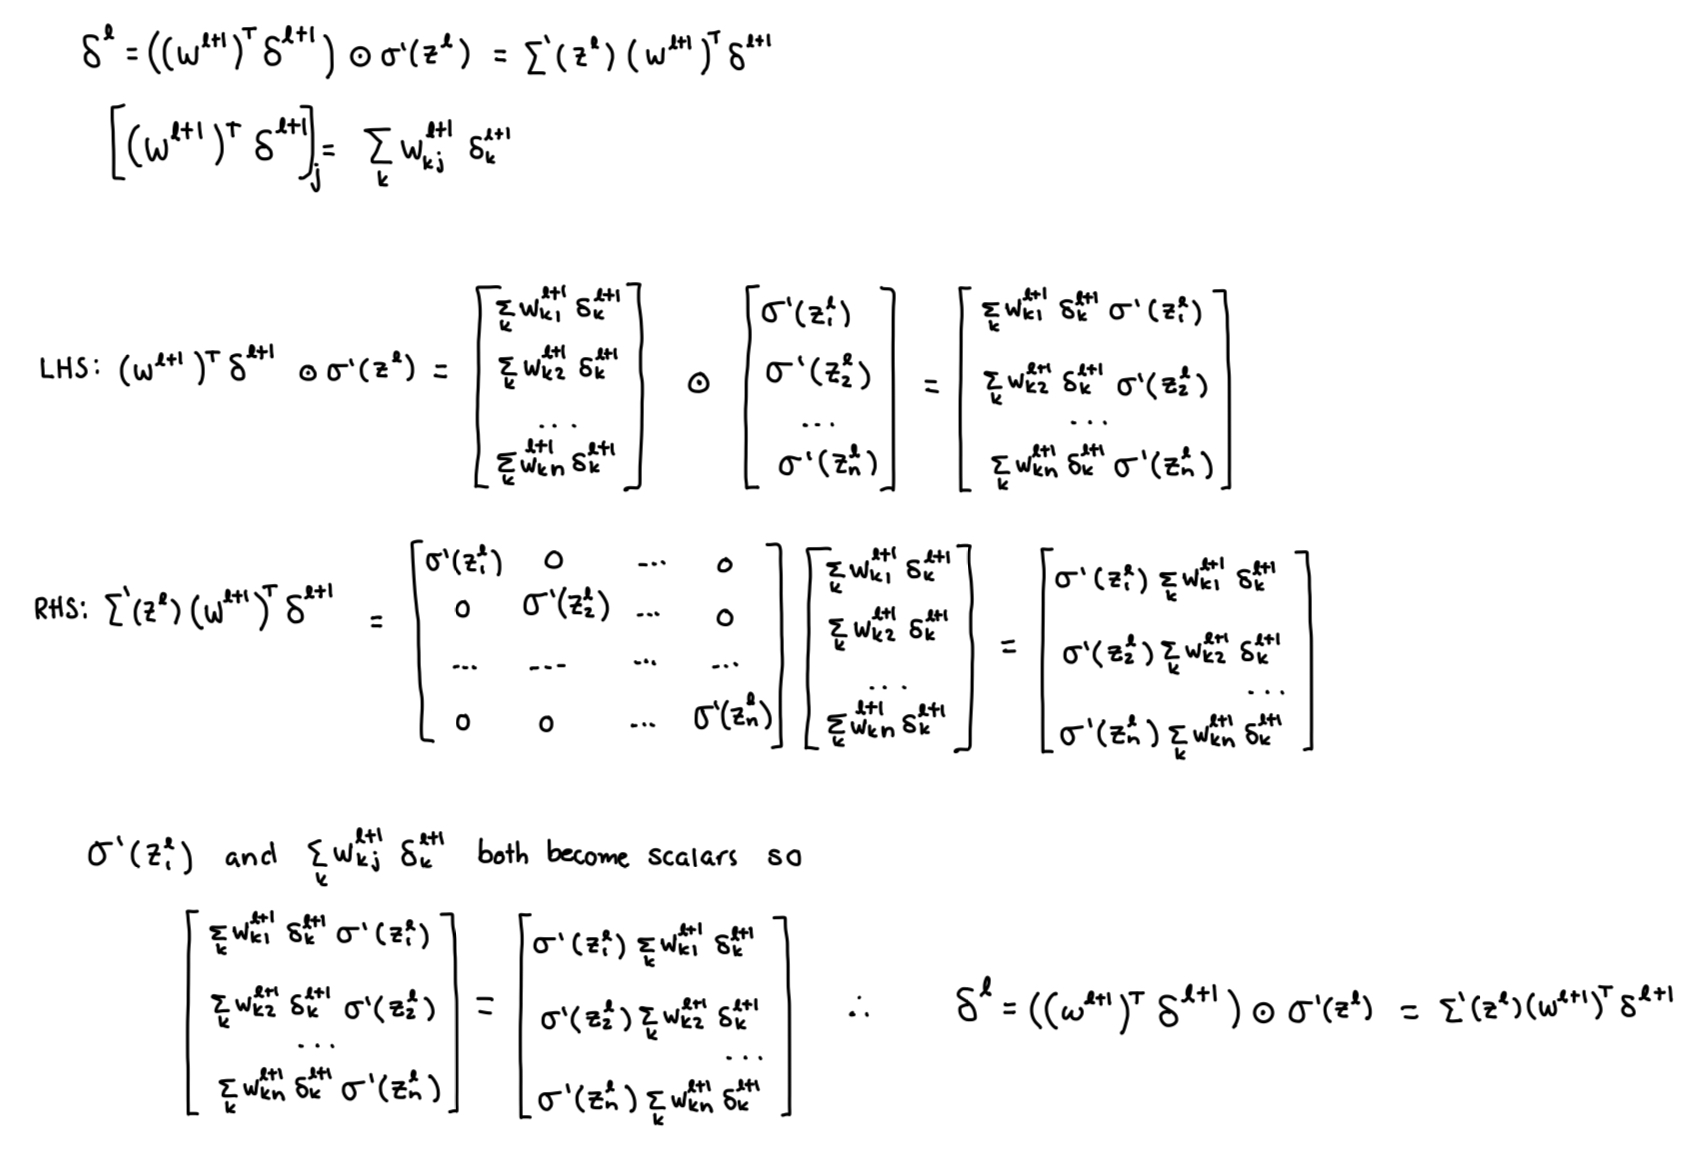 δ^l = ((w^{l+1})^T δ^{l+1}) ⊙ σ'(z^l) = Σ'(z^l) (w^{l+1})^T δ^{l+1}
[(w^{l+1})^T δ^{l+1}]_j = Σ_k w_{kj}^{l+1} δ_k^{l+1}
LHS: (w^{l+1})^T δ^{l+1} ⊙ σ'(z^l) = [Σ_k w_{k1}^{l+1} δ_k^{l+1}; Σ_k w_{k2}^{l+1} δ_k^{l+1}; ...; Σ_k w_{kn}^{l+1} δ_k^{l+1}] ⊙ [σ'(z_1^l); σ'(z_2^l); ...; σ'(z_n^l)] = [Σ_k w_{k1}^{l+1} δ_k^{l+1} σ'(z_1^l); Σ_k w_{k2}^{l+1} δ_k^{l+1} σ'(z_2^l); ...; Σ_k w_{kn}^{l+1} δ_k^{l+1} σ'(z_n^l)]
RHS: Σ'(z^l) (w^{l+1})^T δ^{l+1} = [σ'(z_1^l) 0 ... 0; 0 σ'(z_2^l) ... 0; ... ... ... ...; 0 0 ... σ'(z_n^l)] [Σ_k w_{k1}^{l+1} δ_k^{l+1}; Σ_k w_{k2}^{l+1} δ_k^{l+1}; ...; Σ_k w_{kn}^{l+1} δ_k^{l+1}] = [σ'(z_1^l) Σ_k w_{k1}^{l+1} δ_k^{l+1}; σ'(z_2^l) Σ_k w_{k2}^{l+1} δ_k^{l+1}; ...; σ'(z_n^l) Σ_k w_{kn}^{l+1} δ_k^{l+1}]
σ'(z_i^l) and Σ_k w_{kj}^{l+1} δ_k^{l+1} both become scalars so
[Σ_k w_{k1}^{l+1} δ_k^{l+1} σ'(z_1^l); Σ_k w_{k2}^{l+1} δ_k^{l+1} σ'(z_2^l); ...; Σ_k w_{kn}^{l+1} δ_k^{l+1} σ'(z_n^l)] = [σ'(z_1^l) Σ_k w_{k1}^{l+1} δ_k^{l+1}; σ'(z_2^l) Σ_k w_{k2}^{l+1} δ_k^{l+1}; ...; σ'(z_n^l) Σ_k w_{kn}^{l+1} δ_k^{l+1}] ∴ δ^l = ((w^{l+1})^T δ^{l+1}) ⊙ σ'(z^l) = Σ'(z^l)(w^{l+1})^T δ^{l+1}